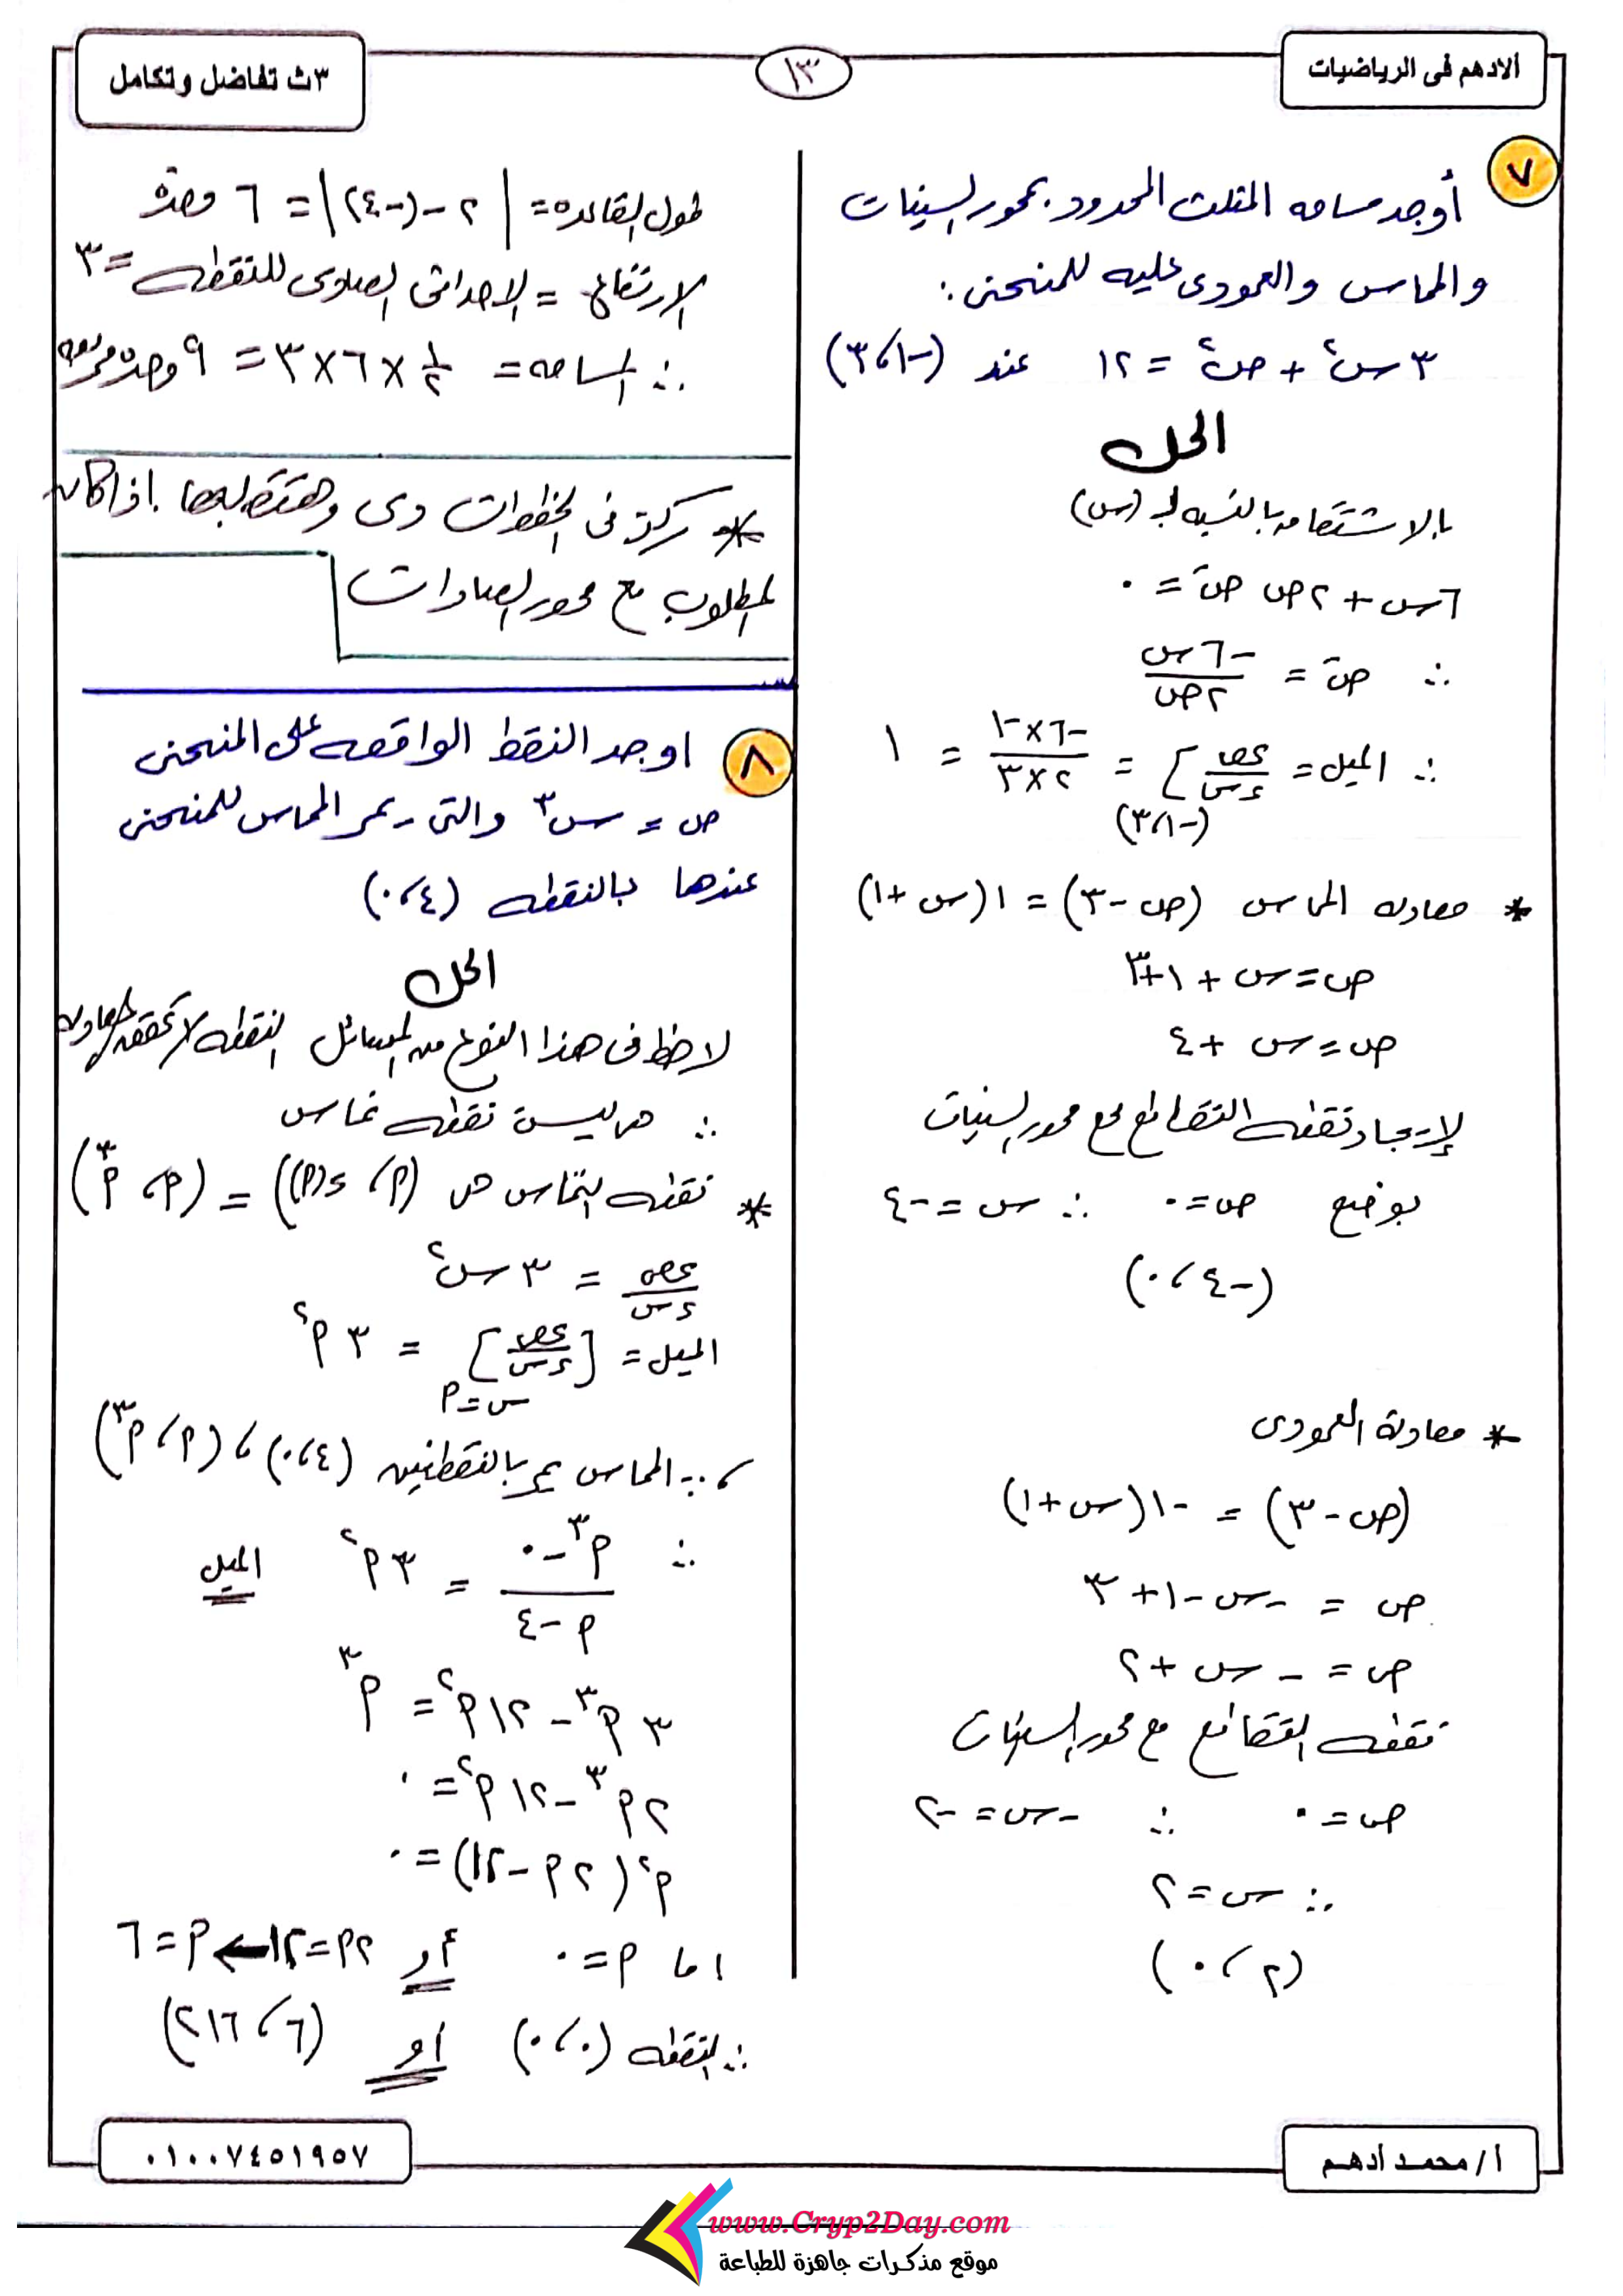 ألادهم فى الرياضيات
١٣
٣ث تفاضل وتكامل
٧
أوجد مساحه المثلث المحدود بمحور السينات
والمماس والعمودى عليه للمنحنى :
٣س٢ + ص٢ = ١٢ عند (-١، ٣)
الحل
بالاشتقاق بالنسبه لـ (س)
٦س + ٢ص صَ = ٠
∴ صَ = -٦س / ٢ص
∴ الميل = [ءص/ءس] (-١، ٣) = -٦×-١ / ٢×٣ = ١
* معادله المماس (ص - ٣) = ١(س + ١)
ص = س + ١ + ٣
ص = س + ٤
لإيجاد نقطه التقاطع مع محور السينات
بوضع ص = ٠ ∴ س = -٤
(-٤، ٠)
* معادلة العمودى
(ص - ٣) = -١(س + ١)
ص = -س - ١ + ٣
ص = -س + ٢
نقطه التقاطع مع محور السينات
ص = ٠ ∴ -س = -٢
∴ س = ٢
(٢، ٠)
طول القاعده = |٢ - (-٤)| = ٦ وحده
الارتفاع = الاحداثى الصادى للنقطه = ٣
∴ المساحه = ١/٢ × ٦ × ٣ = ٩ وحده مربعه
* ركز فى الخطوات دى وهتقلبها اذا كان
المطلوب مع محور الصادات
٨
اوجد النقط الواقعه على المنحنى
ص = س٣ والتى يمر المماس للمنحنى
عندها بالنقطه (٤، ٠)
الحل
لاحظ فى هذا النوع من المسائل النقطه لا تحقق المعادله
∴ هى ليست نقطه تماس
* نقطه التماس هى (م، د(م)) = (م، م٣)
ءص/ءس = ٣س٢
الميل = [ءص/ءس] س=م = ٣م٢
، ∵ المماس يمر بالنقطتين (٤، ٠)، (م، م٣)
∴ م٣ - ٠ / م - ٤ = ٣م٢ الميل
٣م٣ - ١٢م٢ = م٣
٢م٣ - ١٢م٢ = ٠
م٢(٢م - ١٢) = ٠
اما م = ٠ أو ٢م = ١٢ ← م = ٦
∴ النقطه (٠، ٠) أو (٦، ٢١٦)
أ / محمد أدهم
٠١٠٠٧٤٥١٩٥٧
www.Cryp2Day.com
موقع مذكرات جاهزة للطباعة